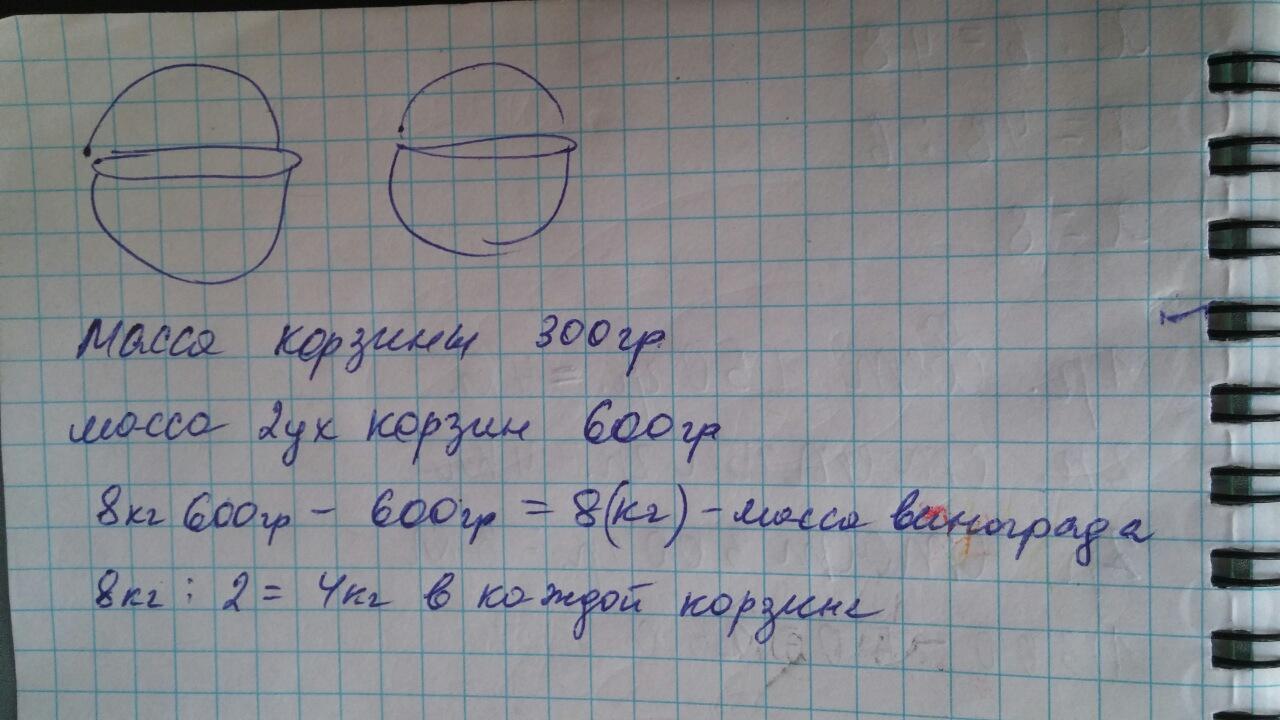 Масса корзины 300гр
масса 2ух корзин 600гр
8кг 600гр - 600гр = 8(кг) - масса винограда
8кг : 2 = 4кг в каждой корзине